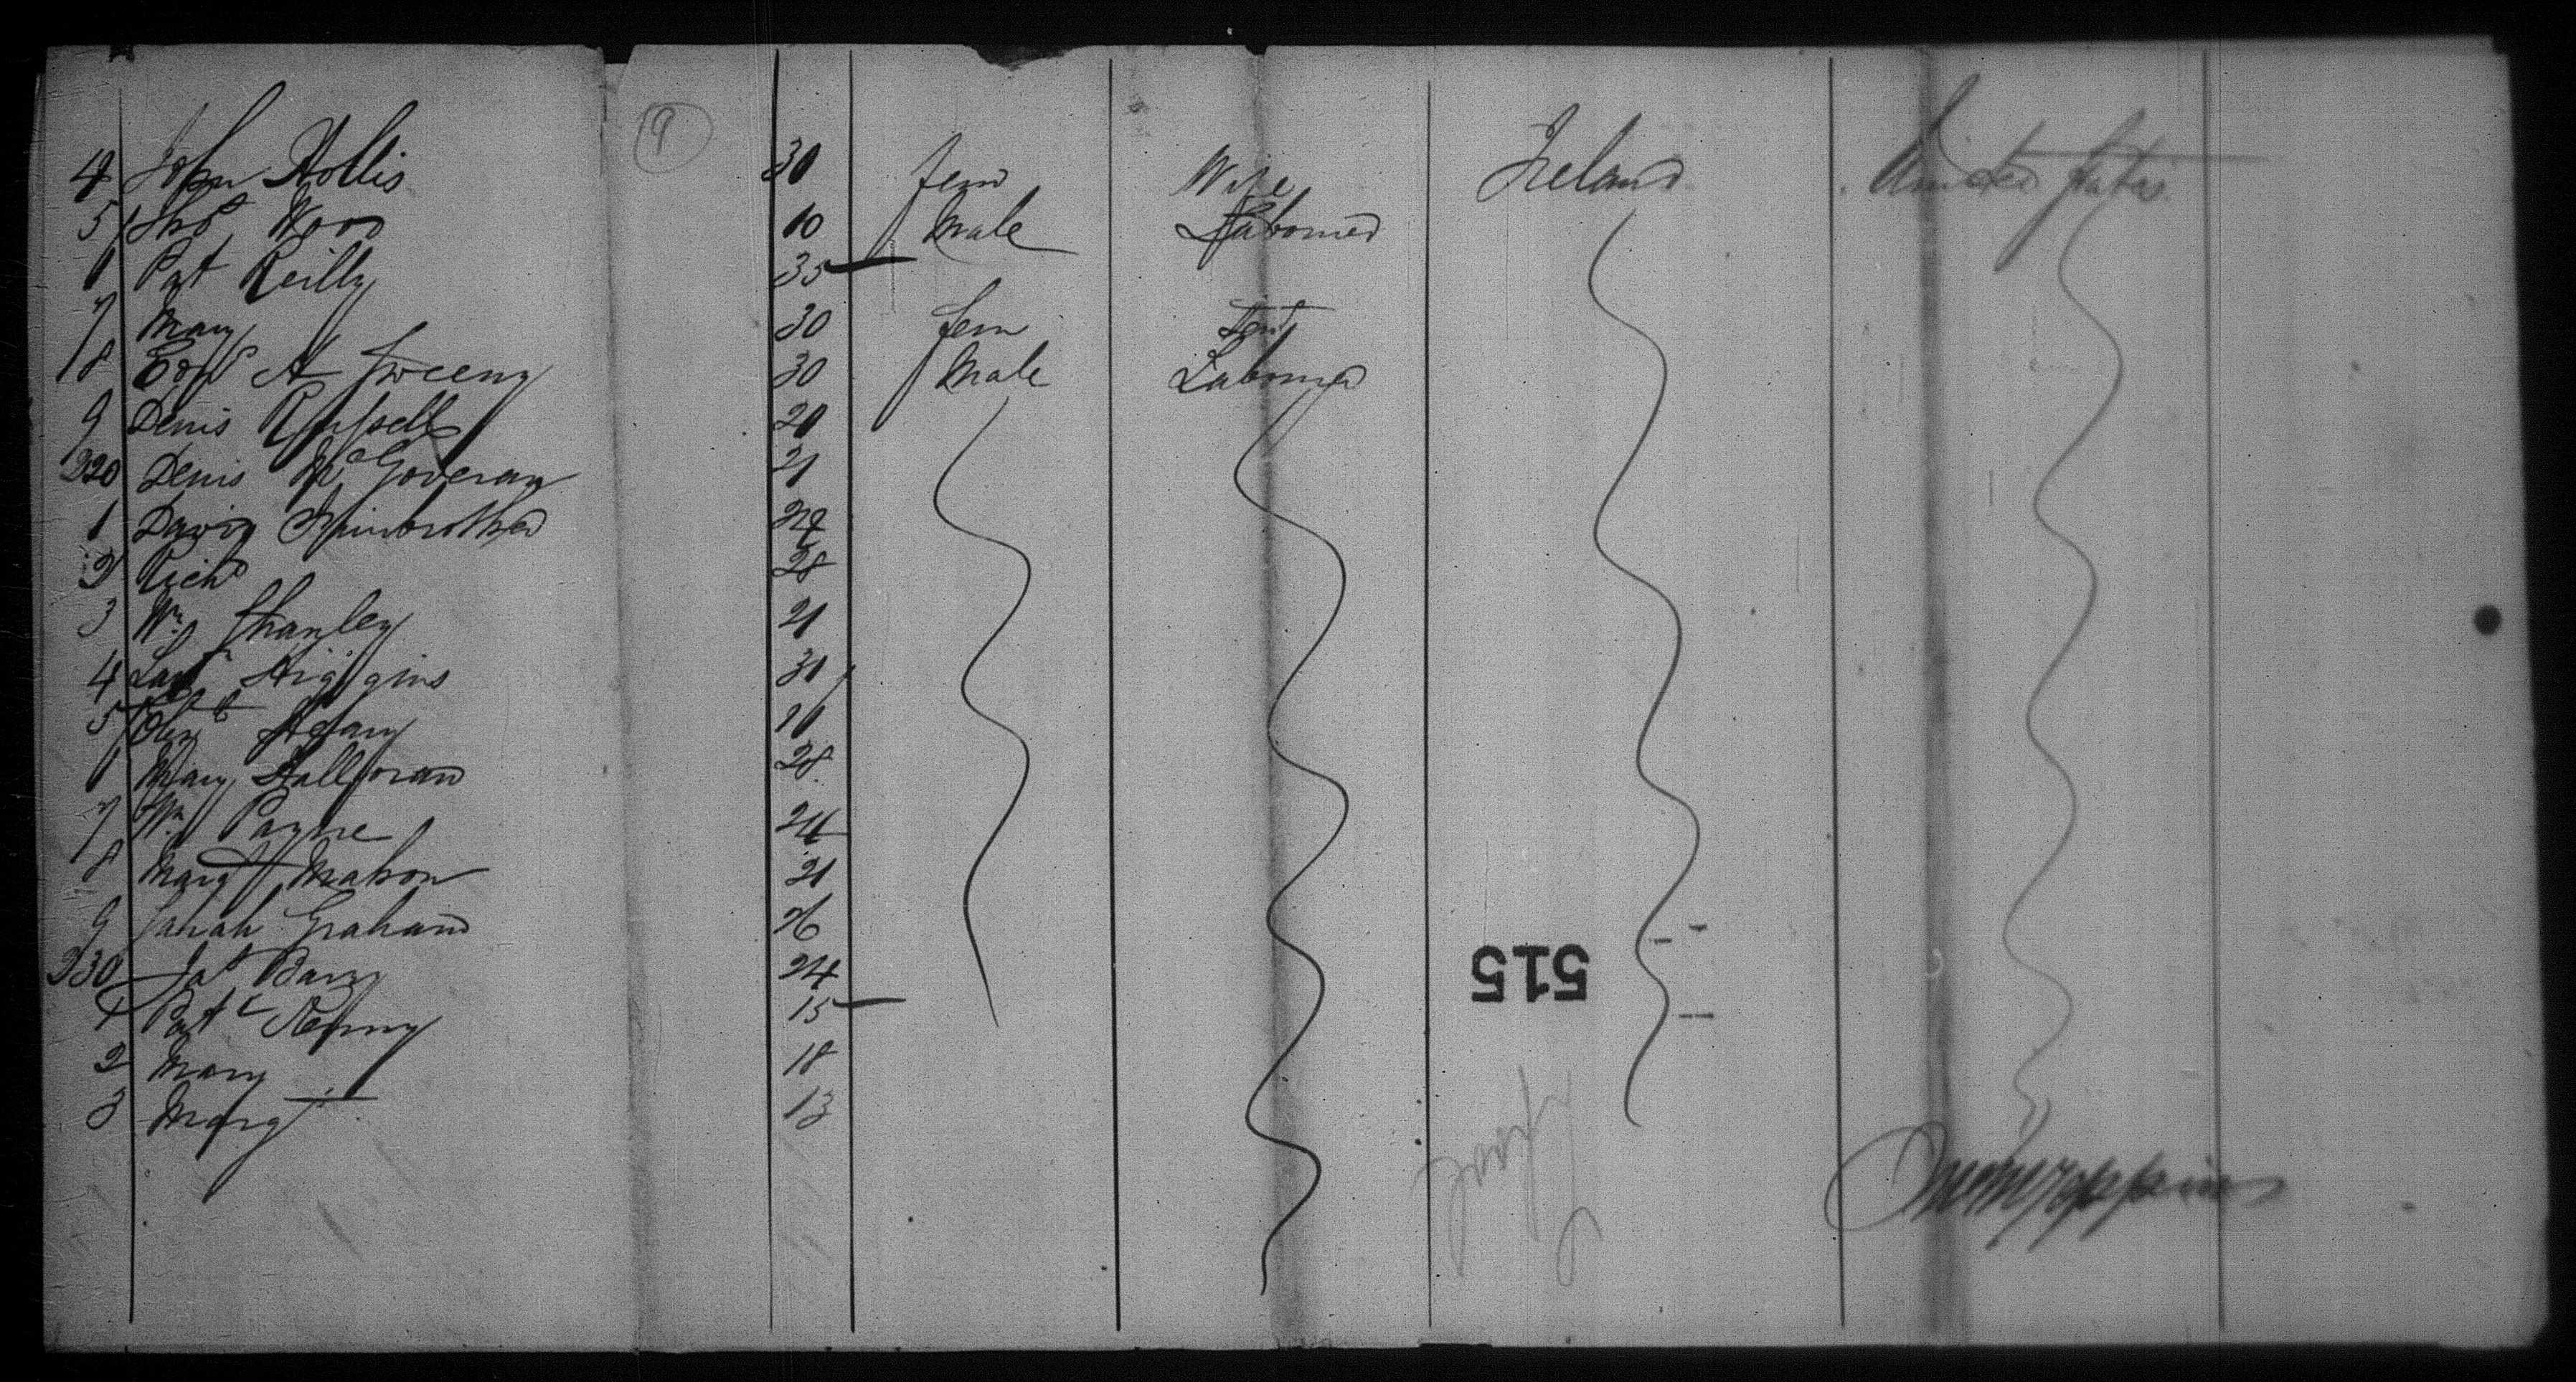 9
4 John Hollis 30 fem Wife Ireland United States
5 Thos Wood 10 Male Labourer
6 Pat Reilly 35
7 Mary 30 fem
8 Edwd Sweeny 30 Male Labourer
9 Denis Russell 20
220 Denis McGoveran 21
1 David Fairbrother 24
2 Richd 28
3 Wm Shanley 21
4 Higgins 30
5
6 Mary Halloran 28
7 Wm Payne
8 Margt Mahon 21
9 Sarah Graham 26
230 Jas Barry 24
1 Patk Kenny 15
2 Mary 18
3 Margt 13
515